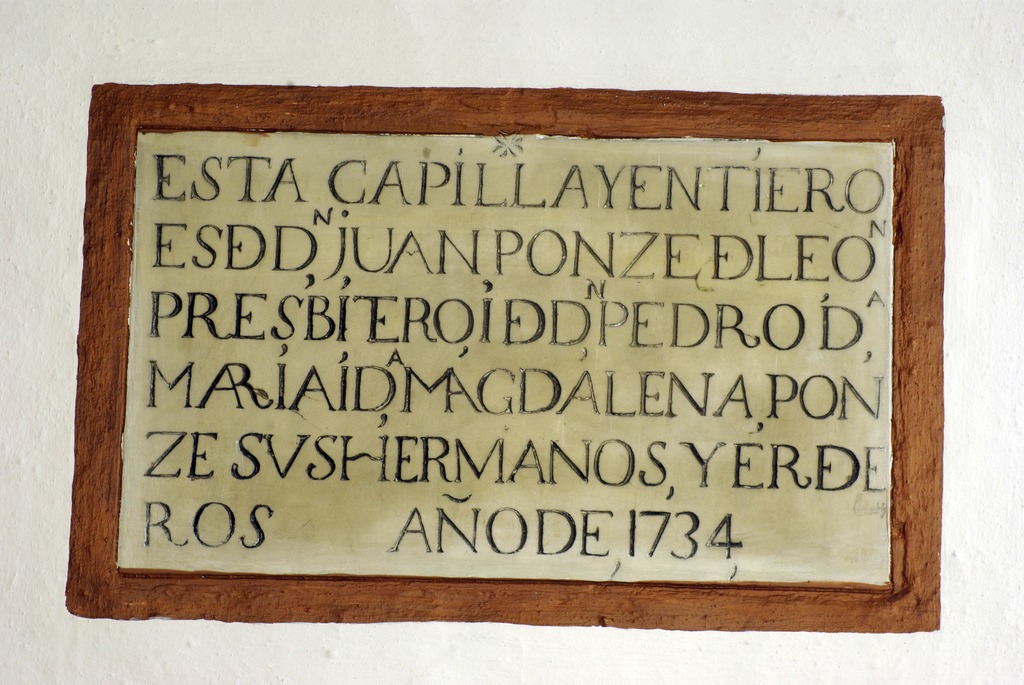 ESTA CAPILLA Y ENTIERO
ES Đ Dᴺ, JUAN PONZE Đ LEOᴺ
PRESBITERO, I Đ Dᴺ, PEDRO Dᴬ,
MARIA I Dᴬ, MAGDALENA, PON
ZE SVS HERMANOS, Y ERĐE
ROS AÑO DE, 1734,